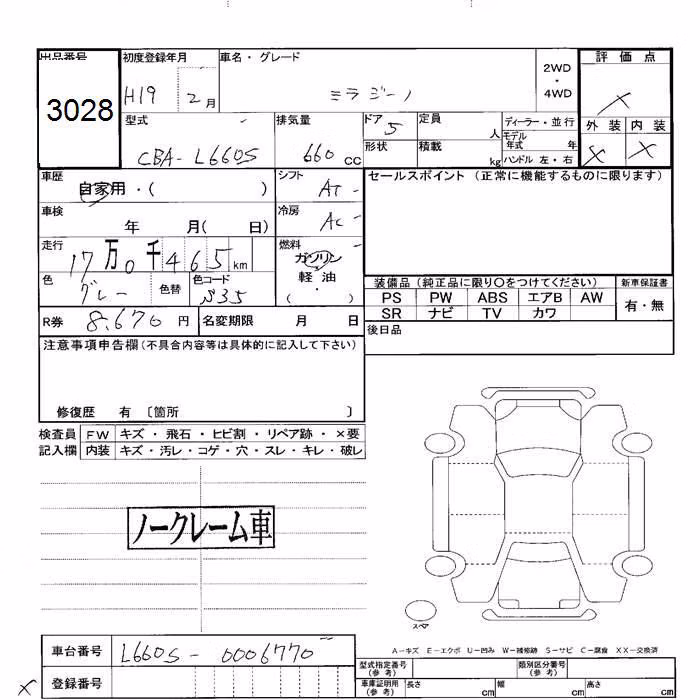 出品番号
3028
初度登録年月
H19 2月
車名・グレード
ミラジーノ
2WD
・
4WD
評価点
型式
CBA-L660S
排気量
660 cc
ドア 5
定員 人
ディーラー・並行
モデル年式 年
ハンドル 左・右
形状
積載 kg
外装 内装
× ×
車歴
自家用・( )
シフト
AT
セールスポイント (正常に機能するものに限ります)
車検
年 月( 日)
冷房
AC
走行
17万0千465km
燃料
ガソリン
軽油
・
( )
色
グレー
色替
色コード
S35
装備品 (純正品に限り○をつけてください)
新車保証書
PS PW ABS エアB AW
有・無
SR ナビ TV カワ
R券 8,670 円
名変期限 月 日
後日品
注意事項申告欄(不具合内容等は具体的に記入して下さい)
修復歴 有 〔箇所 〕
検査員 FW キズ・飛石・ヒビ割・リペア跡・×要
記入欄 内装 キズ・汚レ・コゲ・穴・スレ・キレ・破レ
ノークレーム車
スペア
A-キズ E-エクボ U-凹み W-補修跡 S-サビ C-腐食 XX-交換済
車台番号 L660S-0006770
型式指定番号(参考)
類別区分番号(参考)
登録番号
車庫証明用(参考) 長さ cm 幅 cm 高さ cm